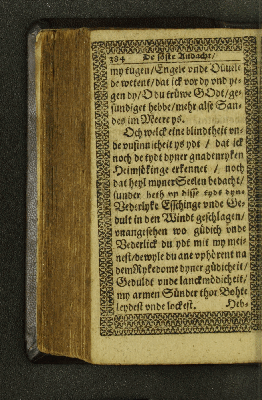 384 De söste Andacht/
my tügen/ Engele vnde Düuel
de wetent/ dat ick vor dy vnd ye-
gen dy/ O du trüwe GOdt/ ge-
sündiget hebbe/ mehr alse San-
des im Meere ys.
Och welck eine blindtheit vn-
de vnsinnicheit ys ydt / dat ick
noch de tydt dyner gnadenryken
Heimsökinge erkennet / noch
dat heyl myner Seelen bedacht/
sunder heth vp disse tydt dyne
Vederlyke Esschinge vnde Ge-
dult in den Windt geschlagen/
vnangesehen wo güdich vnde
Vederlick du ydt mit my mei-
nest/ dewyle du ane vphörent na
dem Rykedome dyner güdicheit/
Geduldt vnde lanckmödicheit/
my armen Sünder thor Bohte
leydest vnde lockest. Heb-